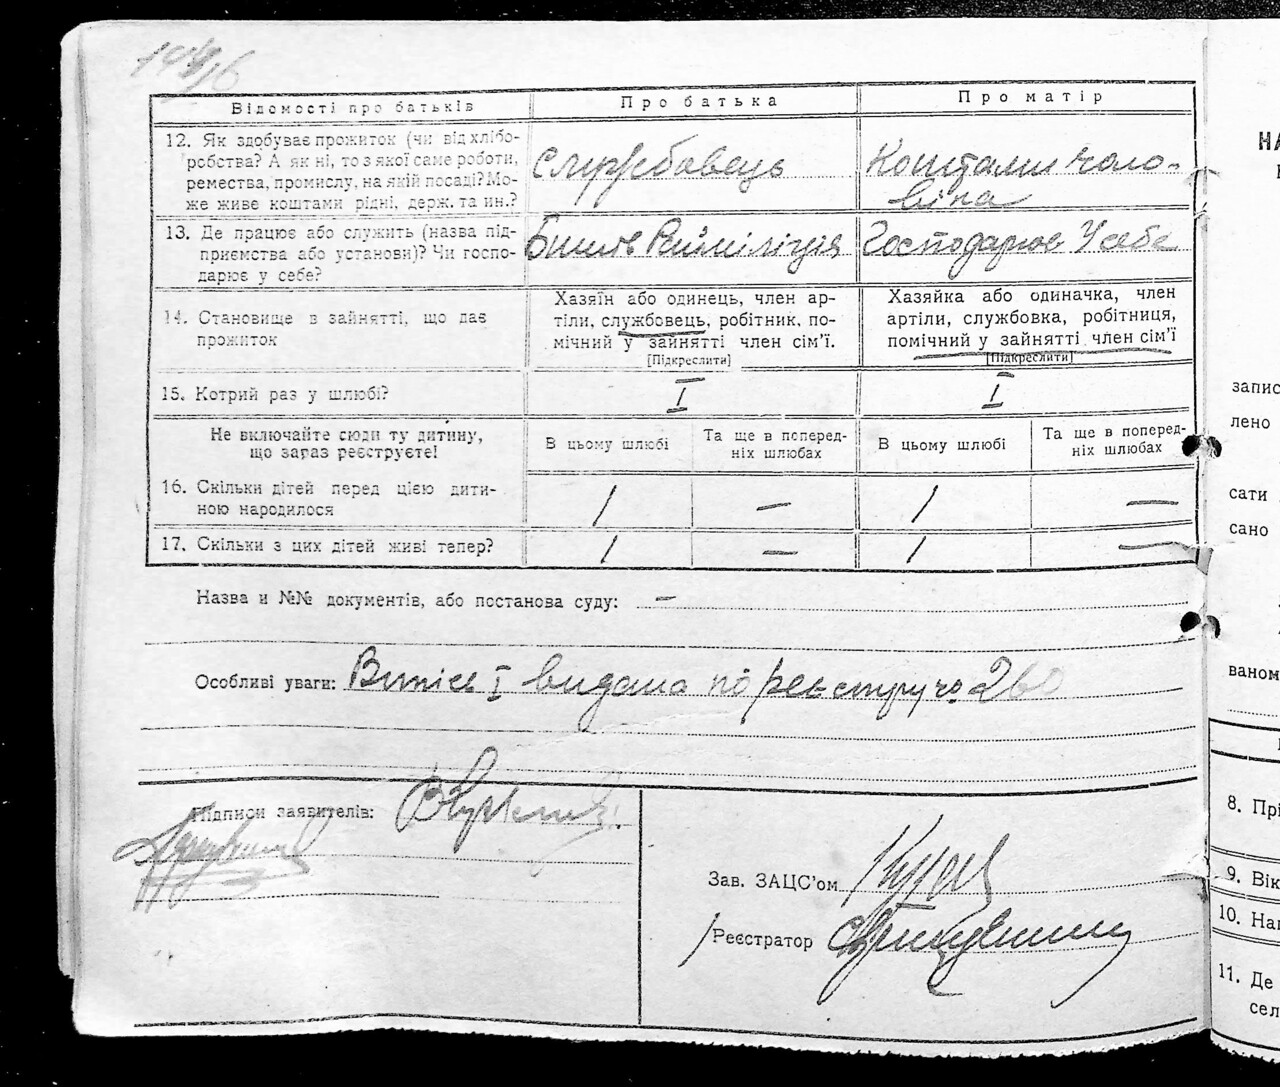 Відомості про батьків
Про батька
Про матір
12. Як здобуває прожиток (чи від хлібо-
робства? А як ні, то з якої саме роботи,
ремества, промислу, на якій посаді? Мо-
же живе коштами рідні, держ. та ин.?
службовець
Коштами чоло-
віка
13. Де працює або служить (назва під-
приємства або установи)? Чи госпо-
дарює у себе?
Господарює У себе
14. Становище в зайнятті, що дає
прожиток
Хазяїн або одинець, член ар-
тіли, службовець, робітник, по-
мічний у зайнятті член сім'ї.
[Підкреслити]
Хазяйка або одиначка, член
артіли, службовка, робітниця,
помічний у зайнятті член сім'ї
[Підкреслити]
15. Котрий раз у шлюбі?
I
I
Не включайте сюди ту дитину,
що зараз реєструєте!
В цьому шлюбі
Та ще в поперед-
ніх шлюбах
В цьому шлюбі
Та ще в поперед-
ніх шлюбах
16. Скільки дітей перед цією дити-
ною народилося
1
—
1
—
17. Скільки з цих дітей живі тепер?
1
—
1
—
Назва и №№ документів, або постанова суду: —
Особливі уваги: Випис I видана по реєстру № 260
Підписи заявителів:
Зав. ЗАЦС'ом
Реєстратор
НА
запис
лено
сати
сано
ваном
8. Прі
9. Вік
10. Нац
11. Де
сел